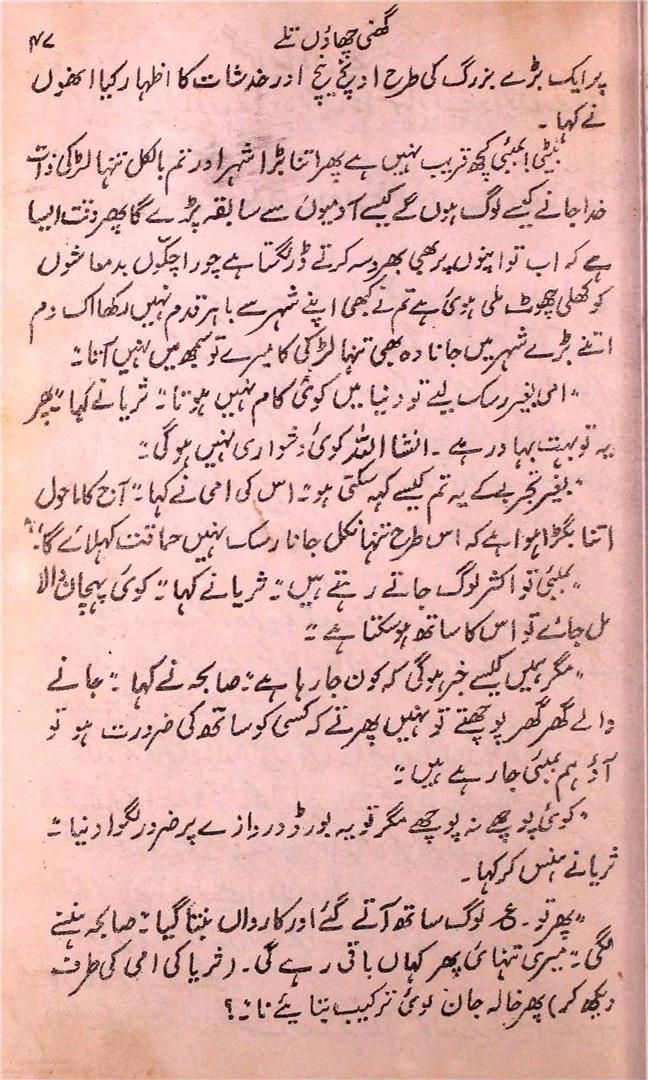 گھنی چھاؤں تلے
۴۷
پر ایک بڑے بزرگ کی طرح اونچ نیچ اور خدشات کا اظہار کیا انھوں
نے کہا۔
بیٹی! بمبئی کچھ قریب نہیں ہے پھر اتنا بڑا شہر اور تم بالکل تنہا لڑکی ذات
خدا جانے کیسے لوگ ہوں گے کیسے آدمیوں سے سابقہ پڑے گا پھر وقت ایسا
ہے کہ اب تو اپنوں پر بھی بھروسہ کرتے ڈر لگتا ہے چور اچکّوں بدمعاشوں
کو کھلی چھوٹ ملی ہوئی ہے تم نے کبھی اپنے شہر سے باہر قدم نہیں رکھا اک دم
اتنے بڑے شہر میں جانا وہ بھی تنہا لڑکی کا میرے تو سمجھ میں نہیں آتا۔"
"امی بغیر رسک لیے تو دنیا میں کوئی کام نہیں ہوتا۔" ثریا نے کہا "پھر
یہ تو بہت بہادر ہے ۔ انشا اللہ کوئی دشواری نہیں ہوگی۔"
"بغیر تجربے کے یہ تم کیسے کہہ سکتی ہو۔" اس کی امی نے کہا "آج کا ماحول
اتنا بگڑا ہوا ہے کہ اس طرح تنہا نکل جانا رسک نہیں حماقت کہلائے گا۔"
"بمبئی تو اکثر لوگ جاتے رہتے ہیں۔" ثریا نے کہا "کوئی پہچان والا
مل جائے تو اس کا ساتھ ہو سکتا ہے۔"
"مگر ہمیں کیسے خبر ہوگی کہ کون جا رہا ہے" صابحہ نے کہا "جانے
والے گھر گھر پوچھتے تو نہیں پھرتے کہ کسی کو ساتھ کی ضرورت ہو تو
آؤ ہم بمبئی جا رہے ہیں۔"
"کوئی پوچھے نہ پوچھے مگر تو یہ بورڈ دروازے پر ضرور لگوا دینا۔"
ثریا نے ہنس کر کہا۔
"پھر تو۔ ع لوگ ساتھ آتے گئے اور کارواں بنتا گیا" صابحہ ہنسنے
لگی "میری تنہائی پھر کہاں باقی رہے گی۔ (ثریا کی امی کی طرف
دیکھ کر) پھر خالہ جان کوئی ترکیب بتایئے نا۔"؟